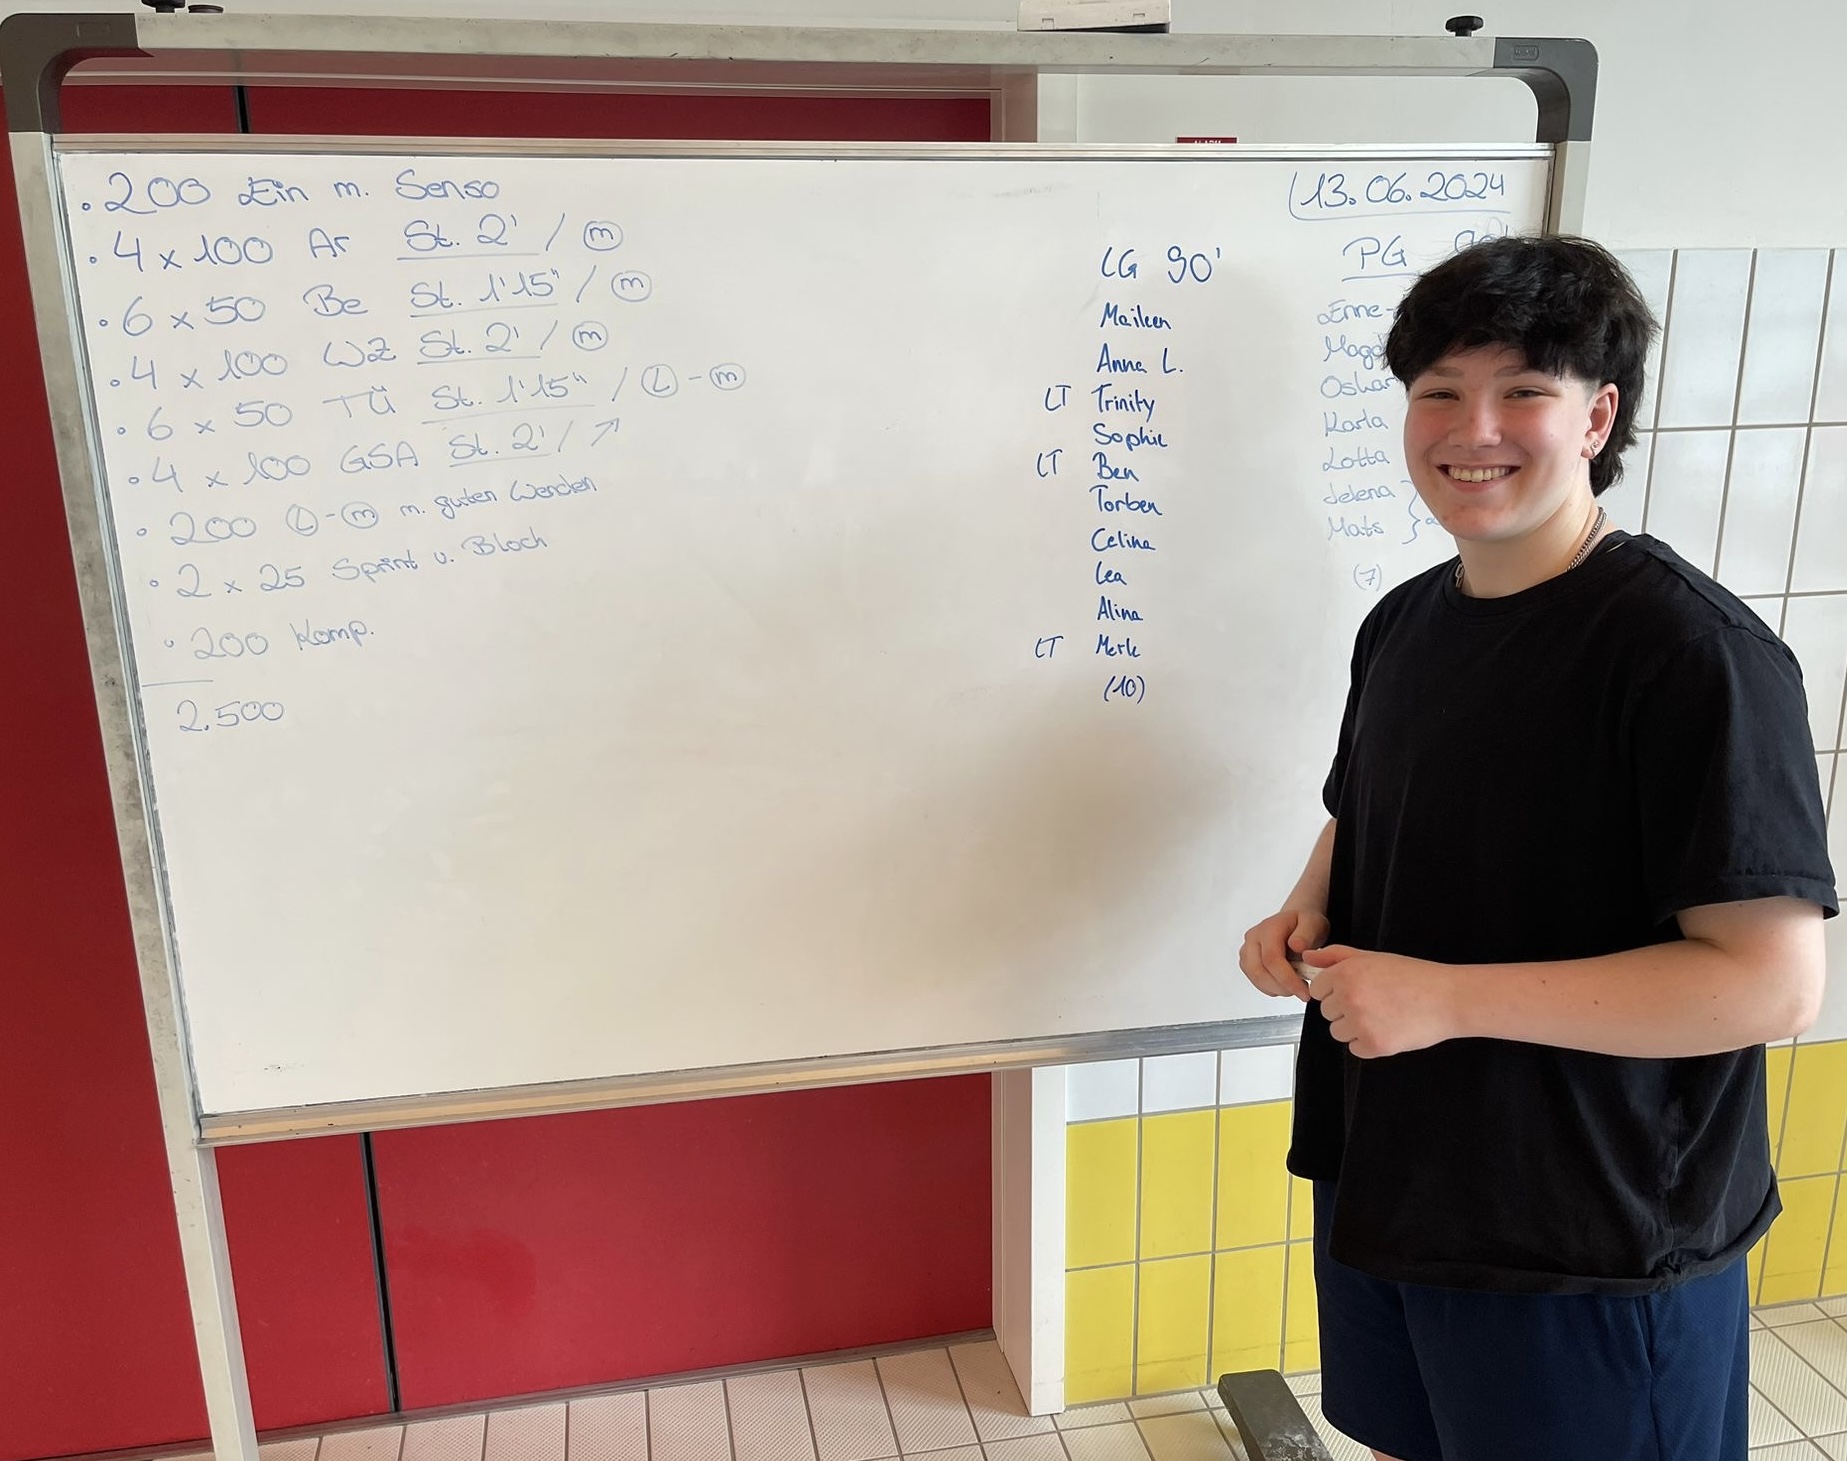 . 200 Ein m. Senso
. 4 x 100 Ar St. 2' / m
. 6 x 50 Be St. 1'15" / m
. 4 x 100 WZ St. 2' / m
. 6 x 50 TÜ St. 1'15" / L - m
. 4 x 100 GSA St. 2' / ↗
. 200 L - m m. guten Wenden
. 2 x 25 Sprint v. Block
. 200 Komp.
2.500
LG 90'
Maileen
Anna L.
LT Trinity
Sophie
LT Ben
Torben
Celina
Lea
Alina
LT Merle
(10)
13.06.2024
PG
Enne-
Magd
Oskar
Karla
Lotta
Jelena
Mats
(7)